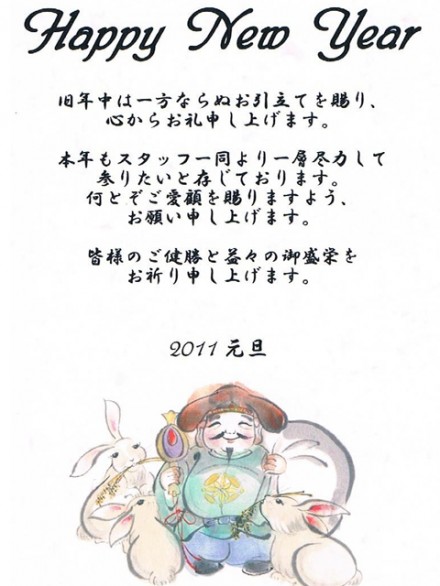 Happy New Year
旧年中は一方ならぬお引立てを賜り、
心からお礼申し上げます。
本年もスタッフ一同より一層尽力して
参りたいと存じております。
何とぞご愛顧を賜りますよう、
お願い申し上げます。
皆様のご健勝と益々の御盛栄を
お祈り申し上げます。
2011 元旦